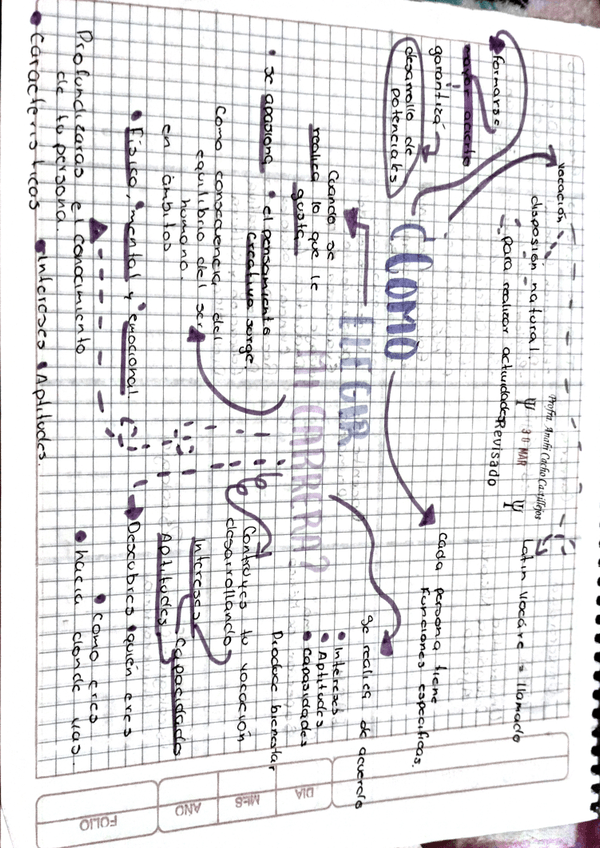 vocación
disposión natural.
para realizar actividades
Profra. Anahí Cacho Castillejos
30 MAR
Revisado
Latín vocare = llamado
formarse
mayor acierto
garantizá
desarrollo de
potenciales
¿CÓMO
ELEGIR
MI CARRERA?
cada persona tiene
funciones especificas.
Se realiza de acuerdo
• Intereses
• Aptitudes
• Capasidades
Produce bienestar
Cuando se
realiza lo que le
gusta
• se apasiona
• el pensamiento
creativo surge.
Como consecuencia del
equilibrio del ser
humano.
en ambitos
• Físico, • mental y • emocional
Contruyes tu vocación
desarrollando
Intereses
Capacidades
Aptitudes
Descubres • quién eres
• Como eres
• hacia donde vas.
Profundizaras el conocimiento
de tu persona.
• Caracteristicas • Intereses • Aptitudes.
DIA
MES
AÑO
FOLIO